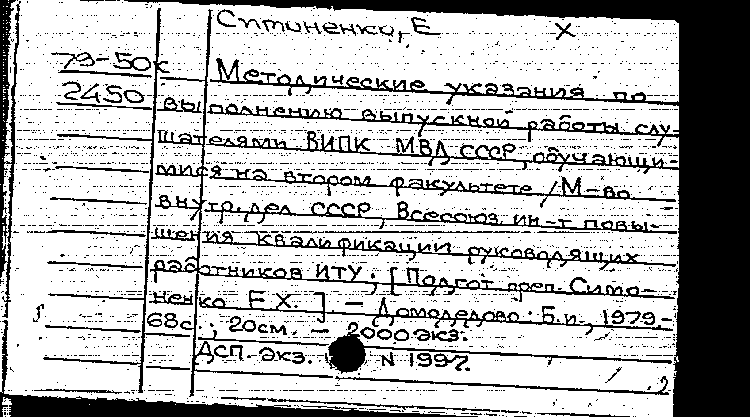 Симоненко, Е X
79-50к
2450
Методические указания по
выполнению выпускной работы слу-
шателями ВИПК МВД СССР, обучающи-
мися на втором факультете /М-во
внутр. дел СССР, Всесоюз. ин-т повы-
шения квалификации руководящих
работников ИТУ; [Подгот. преп. Симо-
ненко Е.Х.] - Домодедово: Б.и., 1979.-
68с.; 20см. - 2000 экз.
ДСП. Экз. N 1997.
2